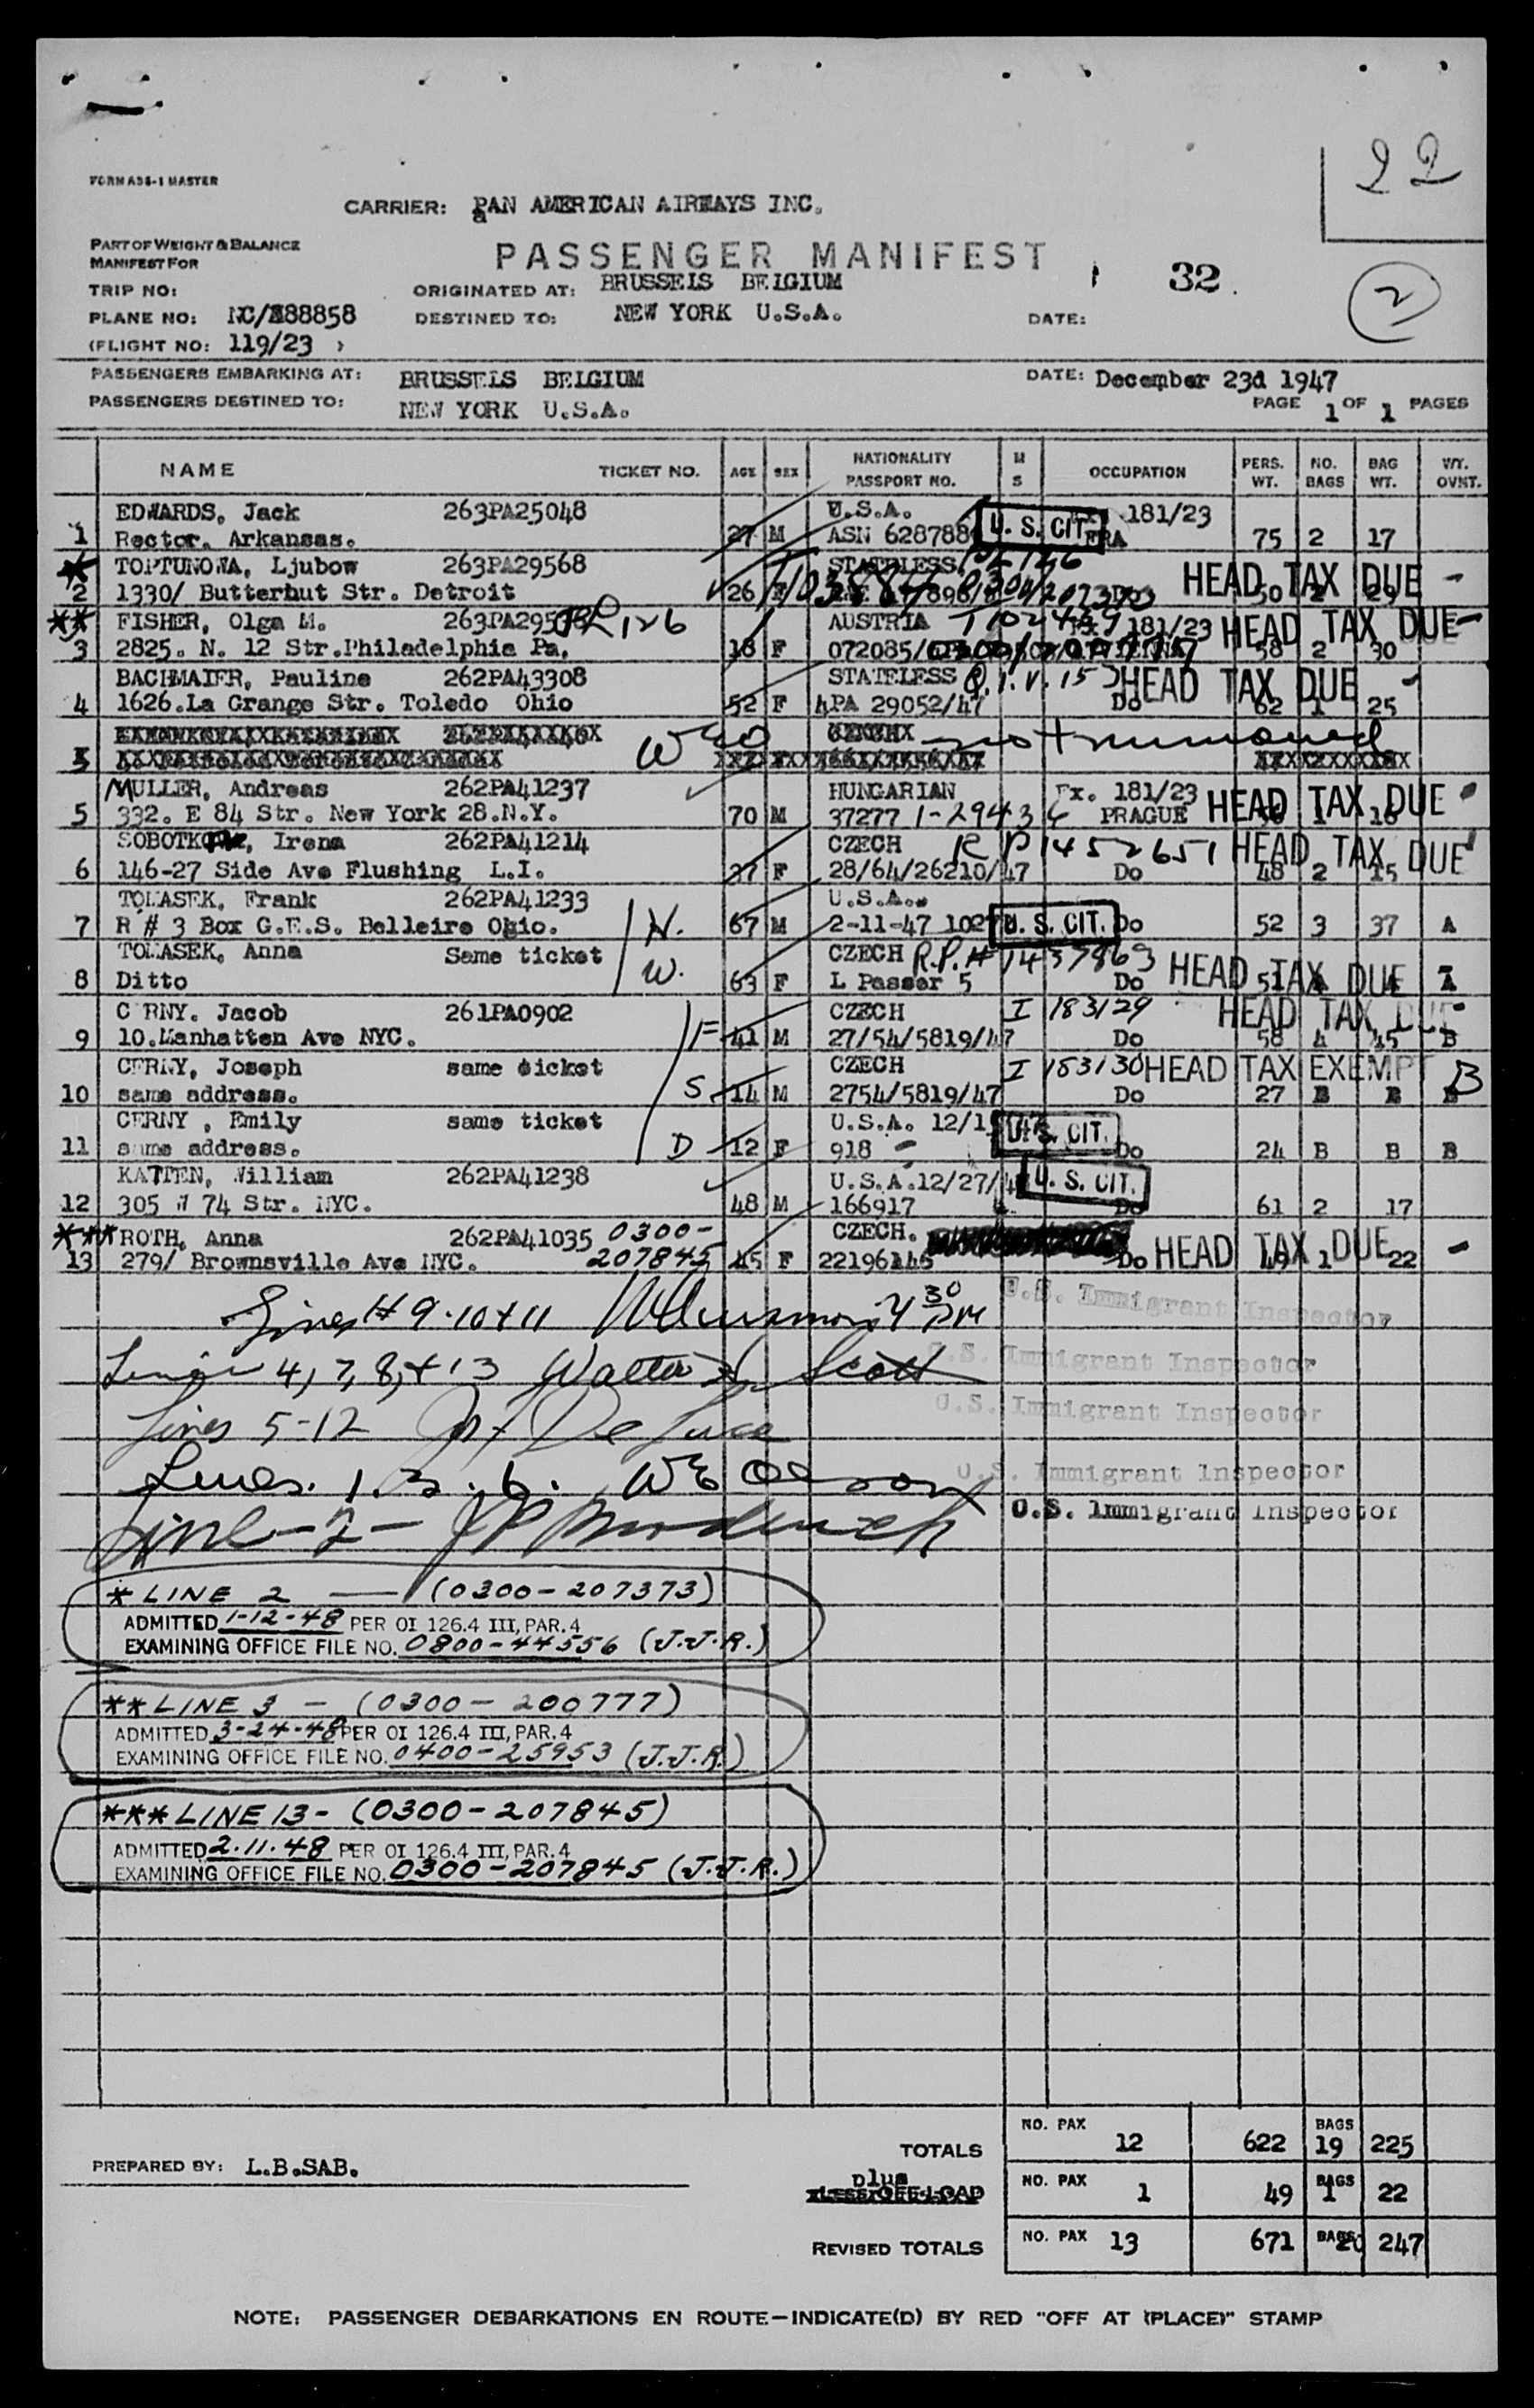 22
FORM A36-1 MASTER
CARRIER: PAN AMERICAN AIRWAYS INC.
PART OF WEIGHT & BALANCE
MANIFEST FOR
PASSENGER MANIFEST
32
2
TRIP NO:
ORIGINATED AT: BRUSSELS BELGIUM
PLANE NO: NC/88858
DESTINED TO: NEW YORK U.S.A.
DATE:
(FLIGHT NO: 119/23 )
PASSENGERS EMBARKING AT: BRUSSELS BELGIUM
DATE: December 23d 1947
PASSENGERS DESTINED TO: NEW YORK U.S.A.
PAGE 1 OF 1 PAGES
NAME TICKET NO. AGE SEX NATIONALITY PASSPORT NO. M S OCCUPATION PERS. WT. NO. BAGS BAG WT. WY. OVNT.
EDWARDS, Jack 263PA25048 U.S.A. 181/23
1 Rector. Arkansas. 27 M ASN 628788 U. S. CIT. 75 2 17
* TOPTUNOWA, Ljubow 263PA29568 STATELESS
2 1330/ Butterhut Str. Detroit 26 HEAD TAX DUE -
** FISHER, Olga M. AUSTRIA 181/23 HEAD TAX DUE -
3 2825. N. 12 Str.Philadelphia Pa. 18 F 072085/ 58 2 30
BACHMAIER, Pauline 262PA43308 STATELESS Q.I.V. 153 HEAD TAX DUE -
4 1626.La Grange Str. Toledo Ohio 52 F APA 29052/47 Do 62 1 25
MULLER, Andreas 262PA41237 HUNGARIAN Ex. 181/23
5 332. E 84 Str. New York 28.N.Y. 70 M 37277 PRAGUE HEAD TAX DUE
Irena 262PA41214 CZECH RP 1452651 HEAD TAX DUE
6 146-27 Side Ave Flushing L.I. 37 F 28/64/26210/47 Do 48 2 15
TOMASEK, Frank 262PA41233 U.S.A.
7 R # 3 Box G.E.S. Belleire Ohio. H. 67 M 2-11-47 U. S. CIT. Do 52 3 37 A
TOMASEK, Anna Same ticket CZECH R.P.# 1457863 HEAD TAX DUE
8 Ditto W. 63 F L Passer 5 Do
C RNY. Jacob 261PA0902 CZECH I 183129 HEAD TAX DUE
9 10.Manhatten Ave NYC. F 41 M 27/54/5819/47 Do 58 4 45 B
CERNY, Joseph same ticket CZECH I 183130 HEAD TAX EXEMPT B
10 same address. S 14 M 2754/5819/47 Do 27 B B
CERNY , Emily same ticket U.S.A. U. S. CIT.
11 same address. D 12 F 918 Do 24 B B B
KATTEN, William 262PA41238 U.S.A.12/27/ U. S. CIT.
12 305 W 74 Str. NYC. 48 M 166917 61 2 17
*** ROTH, Anna 262PA41035 0300- CZECH.
13 279/ Brownsville Ave NYC. 207845 45 F Do HEAD TAX DUE 49 1 22 -
Lines # 9-10+11 4 30 PM U.S. Immigrant Inspector
4, 7, 8, + 13 Walter Scott U.S. Immigrant Inspector
Lines 5-12 De Luca U.S. Immigrant Inspector
Lines. 1. 3. 6. U.S. Immigrant Inspector
Line - 2 - U.S. Immigrant Inspector
* LINE 2 — (0300-207373)
ADMITTED 1-12-48 PER OI 126.4 III, PAR. 4
EXAMINING OFFICE FILE NO. 0800-44556 (J.J.R.)
** LINE 3 - (0300-200777)
ADMITTED 3-24-48 PER OI 126.4 III, PAR. 4
EXAMINING OFFICE FILE NO. 0400-25953 (J.J.R.)
*** LINE 13- (0300-207845)
ADMITTED 2.11.48 PER OI 126.4 III, PAR. 4
EXAMINING OFFICE FILE NO. 0300-207845 (J.J.R.)
TOTALS NO. PAX 12 622 BAGS 19 225
PREPARED BY: L.B.SAB.
plus NO. PAX 1 49 BAGS 1 22
REVISED TOTALS NO. PAX 13 671 BAGS 20 247
NOTE: PASSENGER DEBARKATIONS EN ROUTE—INDICATE(D) BY RED "OFF AT (PLACE)" STAMP